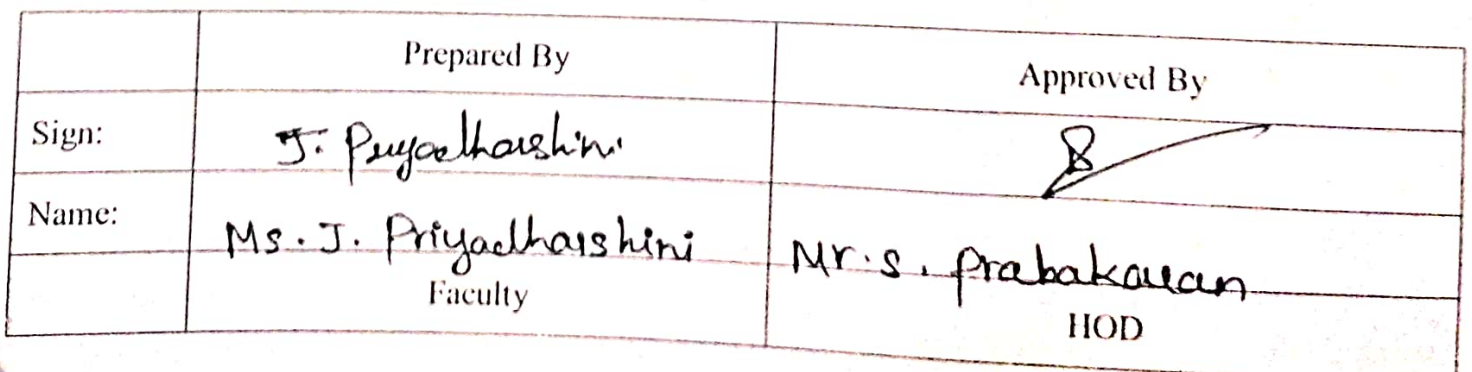 Prepared By Approved By
Sign: J. Priyadharshini
Name: Ms. J. Priyadharshini Mr. S. Prabakaran
Faculty HOD